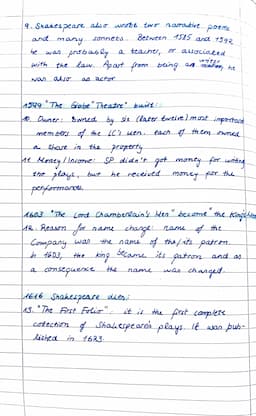 9. Shakespeare also wrote two narrative poems
and many sonnets. Between 1585 and 1592
he was probably a teacher, or associated
with the law. Apart from being an writer, he
was also an actor
1599 "The Globe Theatre" built:
10. Owner: Owned by six (later twelve) most important
members of the LC's men. Each of them owned
a share in the property
11. Money/Income: SP didn't get money for writing
the plays, but he received money for the
performances.
1603 "The Lord Chamberlain's Men" become "the King's Men"
12. Reason for name change: name of the
Company was the name of the/its patron.
In 1603, the king became its patron and as
a consequence the name was changed.
1616 Shakespeare dies:
13. "The First Folio": it is the first complete
collection of Shakespeare's plays. It was pub-
lished in 1623.